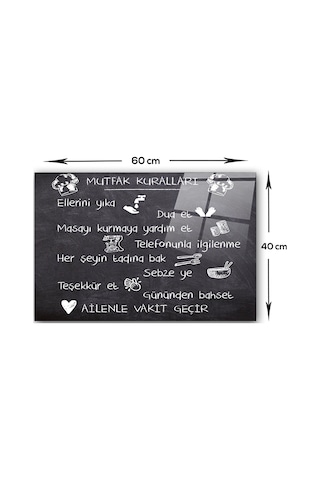 60 cm
MUTFAK KURALLARI
Ellerini yıka
Dua et
Masayı kurmaya yardım et
Telefonunla ilgilenme
40 cm
Her şeyin tadına bak
Sebze ye
Teşekkür et
Gününden bahset
AİLENLE VAKİT GEÇİR